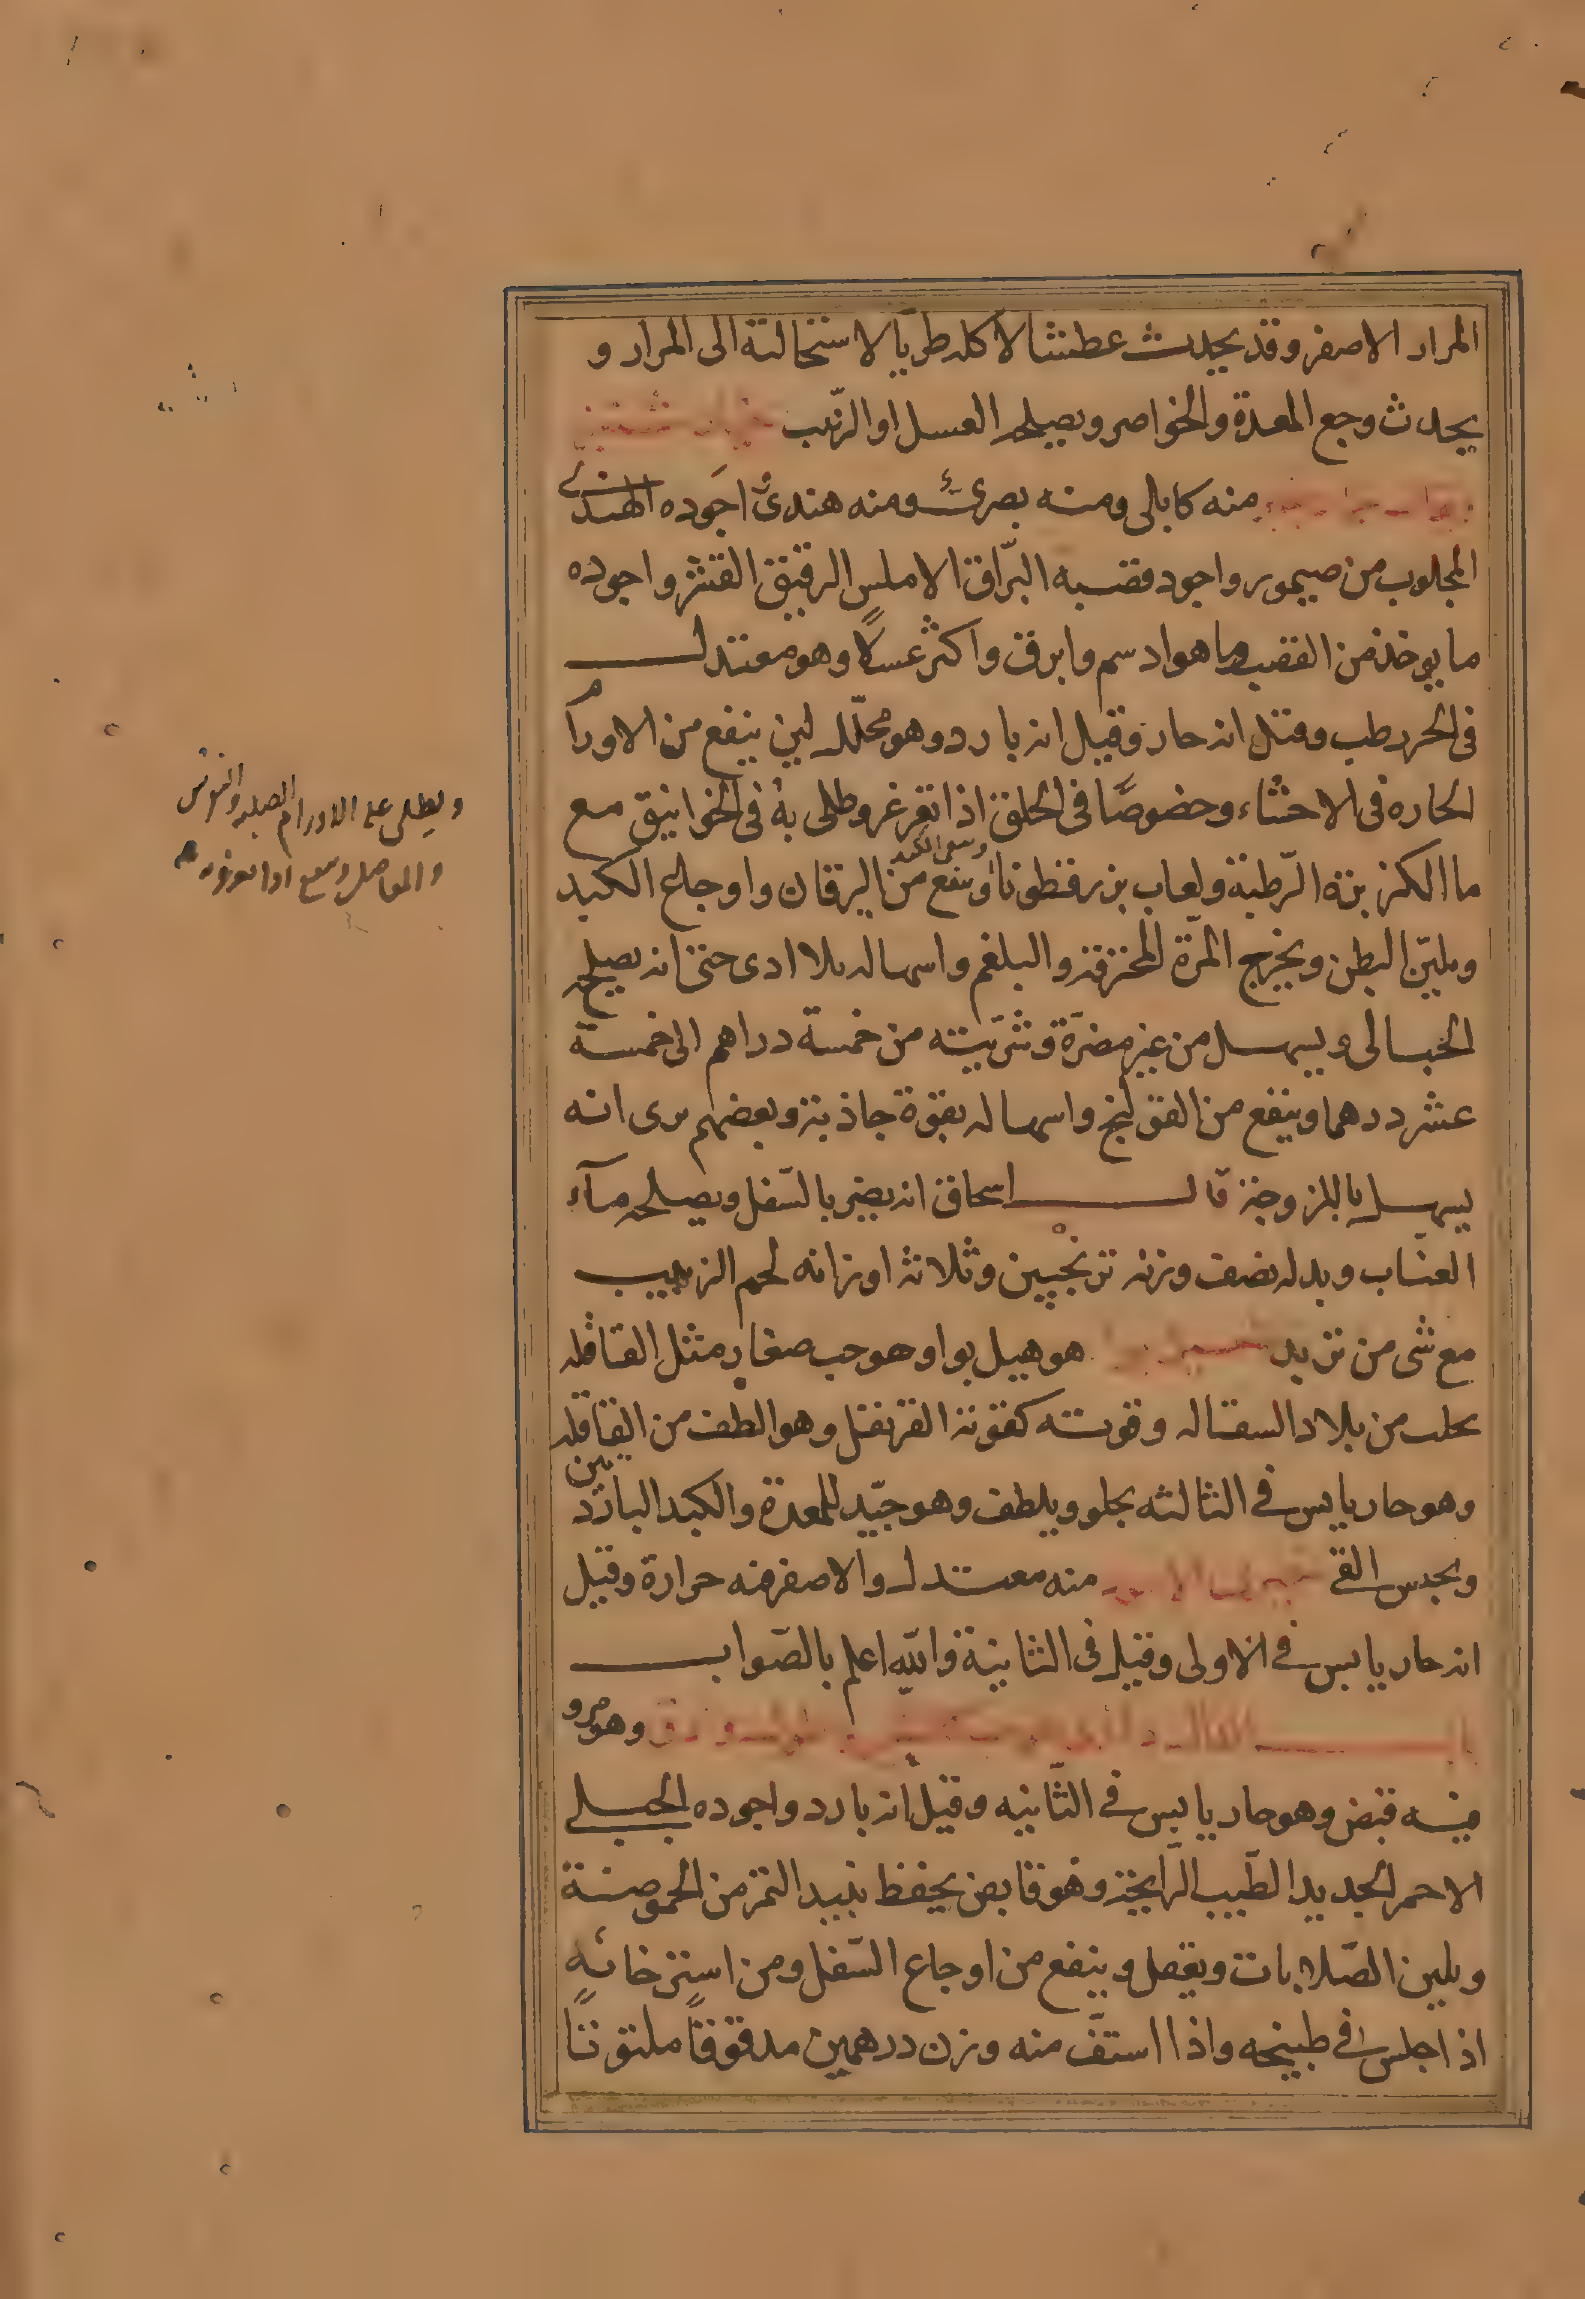 المرار الاصفر وقد يحدث عطشا لاكله طريّا لاستحالته الى المرار و
يحدث وجع المعدة والخواصر ويصلحه العسل او الزبيب
منه كابلى ومنه بصرىّ ومنه هندىّ اجوده الهندىّ
المجلوب من صيمور واجود قصبه البرّاق الاملس الرقيق القشر واجوده
ما يوخذ من القصب ما هو ادسم وابرق واكثر عسلًا وهو معتدل
فى الحر رطب وقيل انه حار وقيل انه بارد وهو محلّل لين ينفع من الاورام
الحاره فى الاحشاء وخصوصًا فى الحلق اذا تغرغر وطلى به فى الخوانيق مع
ما الكزبرة الرّطبة ولعاب بزر قطونا وينفع من اليرقان واوجاع الكبد
ويليّن البطن ويخرج المرّة المحترقة والبلغم واسهاله بلا ادى حتى انه يصلح
الحبالى ويسهل من غير مضرّة وشربته من خمسة دراهم الى خمسة
عشر درهما وينفع من القولنج واسهاله بقوة جاذبة وبعضهم يرى انه
يسهل باللزوجة قال اسحاق انه يضر بالسّفل ويصلحه مآء
العناب وبدله نصف وزنه ترنجبين وثلاثة اوزانه لحم الزبيب
مع شى من تربد هو هيل بوا وهو حب صغار مثل القاقله
يجلب من بلاد السقاله وقوته كقوة القرنفل وهو الطف من القاقله
وهو حار يابس فى الثالثه يجلو ويلطف وهو جيّد للمعدة والكبد الباردتين
ويحبس القئ منه معتدل والاصفر منه حرارة وقيل
انه حار يابس فى الاولى وقيل فى الثانية والله اعلم بالصّواب
وهو مر و
فيه قبض وهو حار يابس فى الثّانيه وقيل انه بارد واجوده الجبلى
الاحمر الجديد الطّيب الرّايحة وهو قابض يحفظ نبيد التمر من الحموضة
ويلين الصّلابات ويعقل وينفع من اوجاع السّفل ومن استرخائه
اذا جلس فى طبيخه واذا استفّ منه وزن درهمين مدقوقًا ملتوتًا
ويطلى على الاورام الصلبه والنقرس
والمفاصل